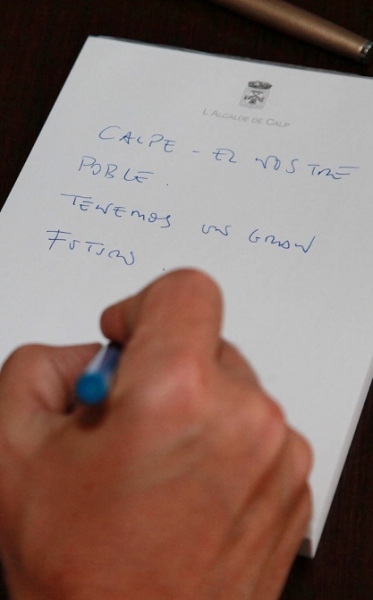 L'ALCALDE DE CALP
CALPE - EL NOSTRE
POBLE.
TENEMOS UN GRAN
FUTURO.